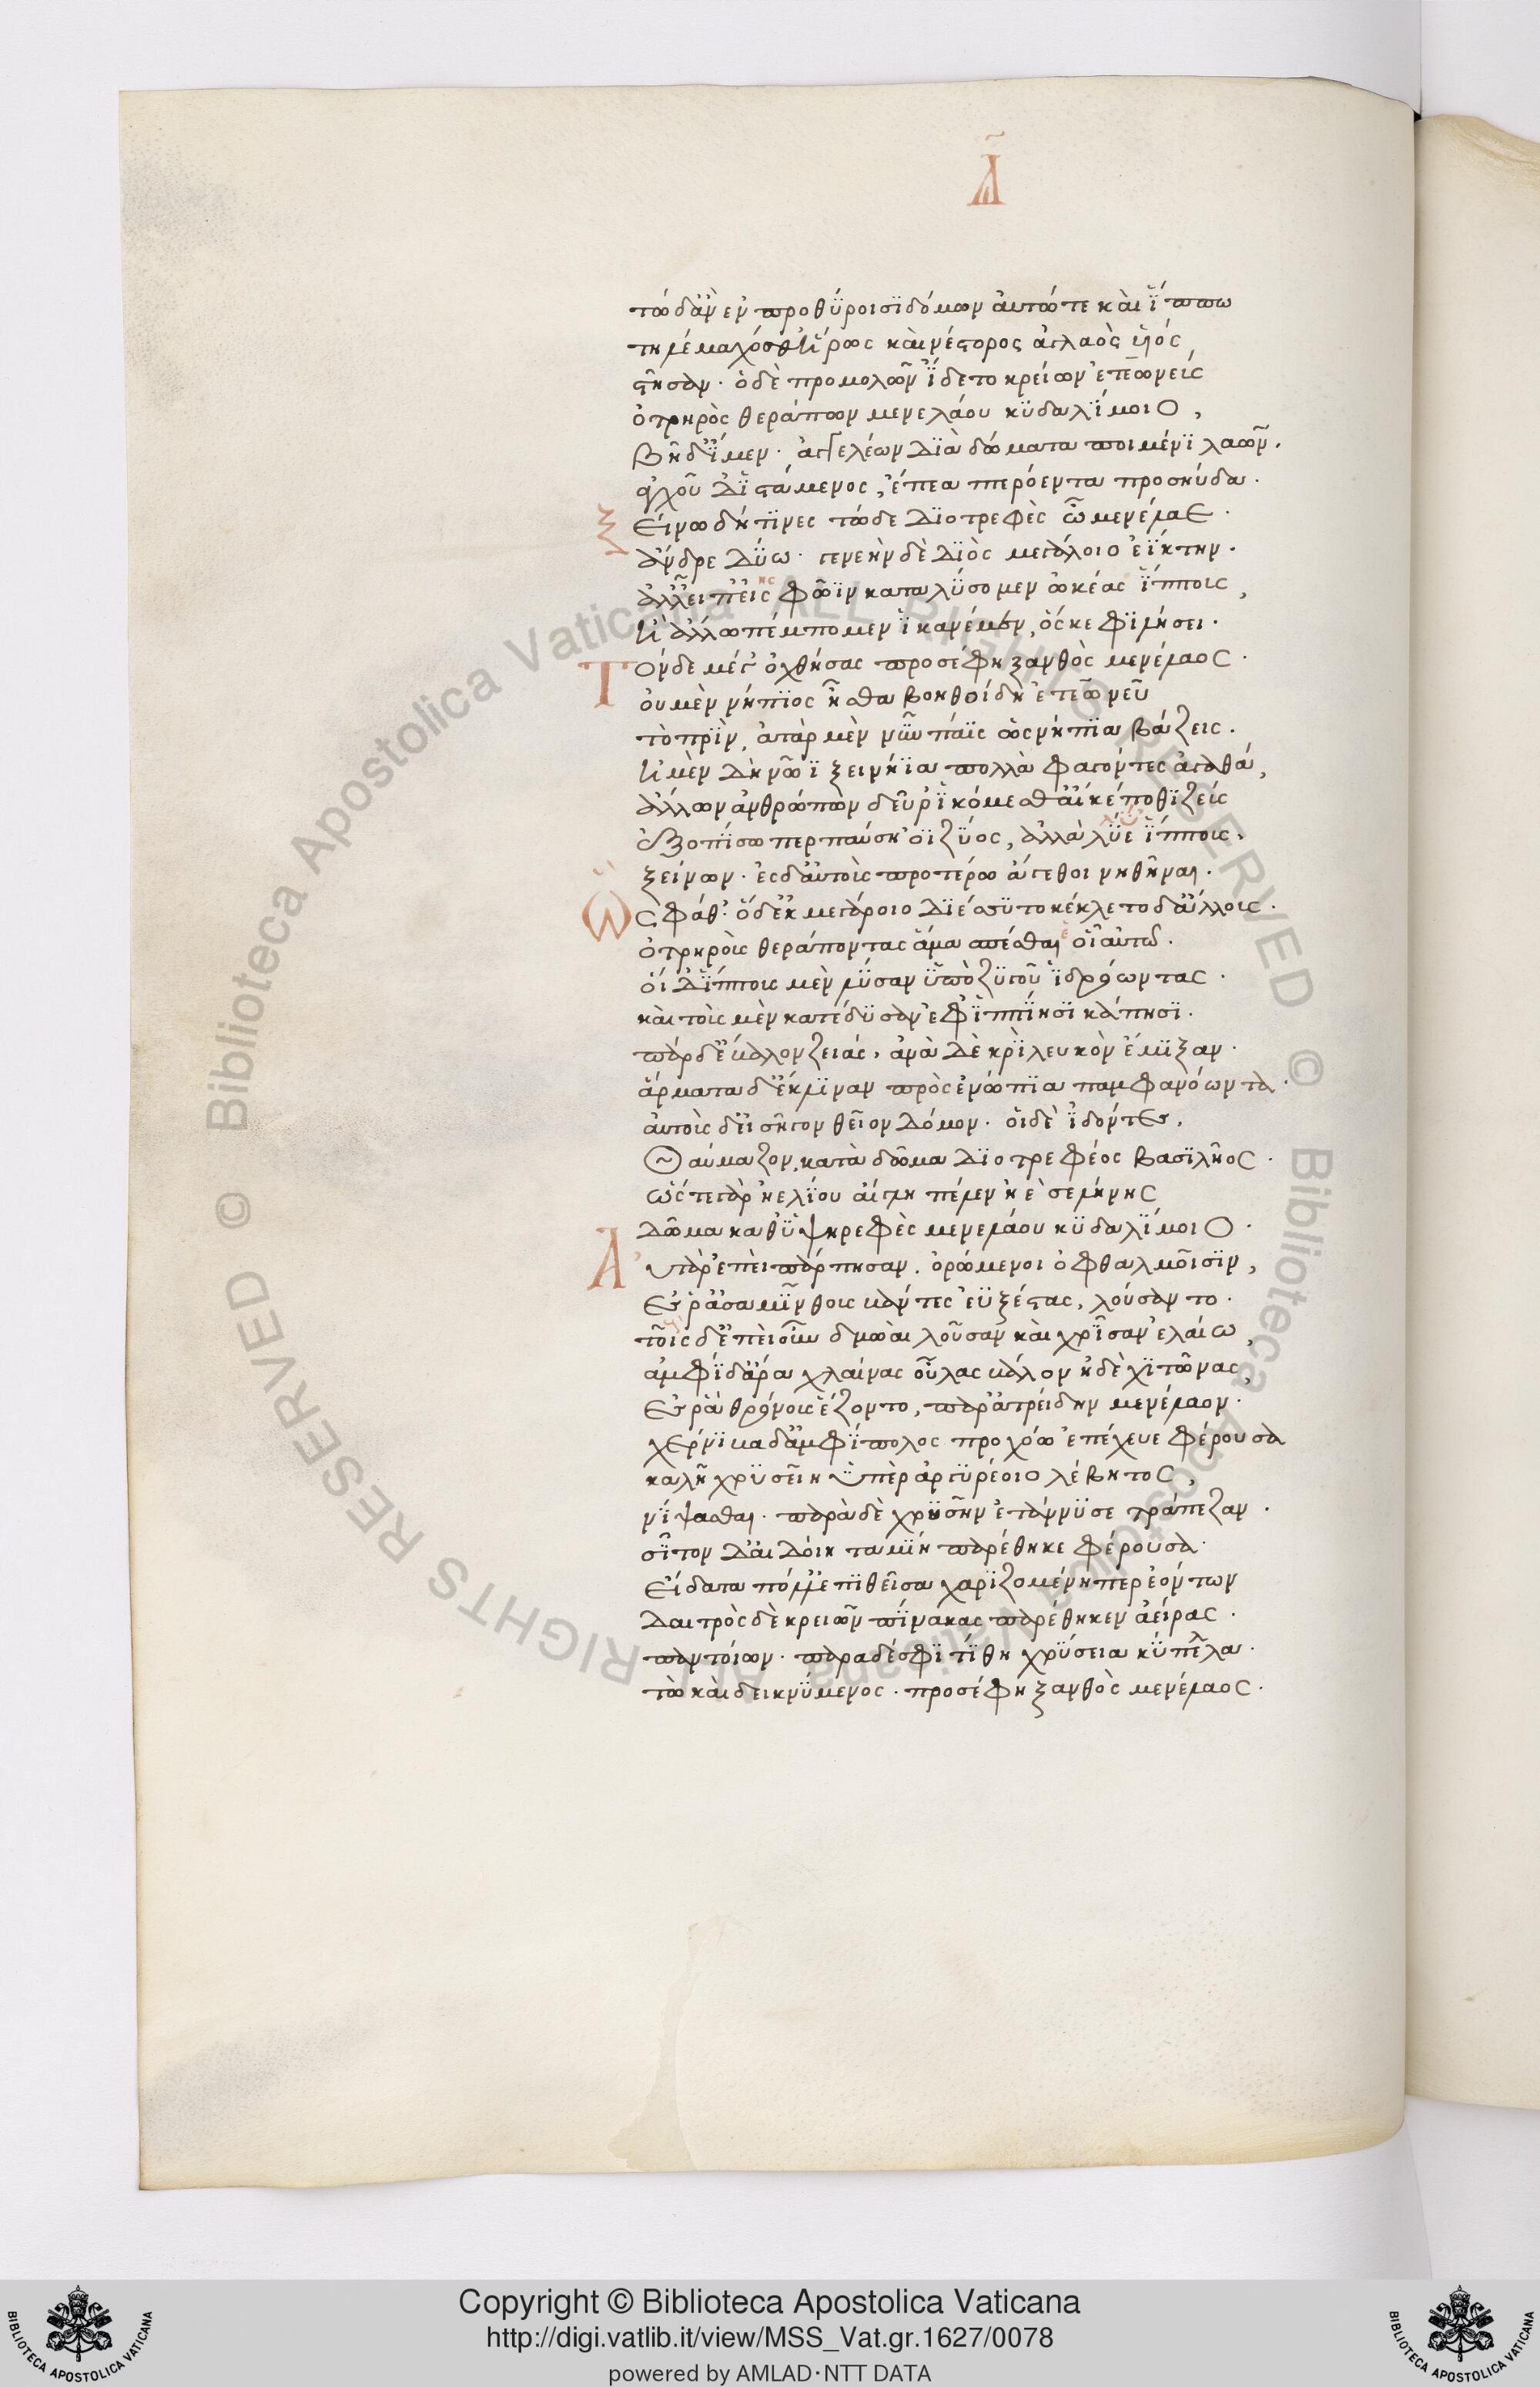 Δ̃
τὼ δ' ἂν ἐν προθύροισϊ δόμων αὐτώ τε καὶ ἵππω
τηλέμαχόσθ' ἥρως καὶ νέστορος ἀγλαὸς ὑιός,
στῆσαν· ὁ δὲ προμολὼν ἴδετο κρείων ἐτεωνεὺς
ὀτρηρὸς θεράπων μενελάου κϋδαλΐμοιο,
βῆ δ' ἴμεν· ἀγγελέων διὰ δώματα ποιμένϊ λαῶν.
ἀγχοῦ δ' ἱστάμενος, ἔπεα πτερόεντα προσηύδα·
Ξείνω δή τϊνες τώδε διοτρεφὲς ὦ μενέλαε·
ἄνδρε δύω· γενεὴν δὲ διὸς μεγάλοιο ἐΐκτην·
ἀλλ' εἴπ' εἴ σφῶϊν καταλύσομεν ὠκέας ἵππους,
ἦ ἄλλω πέμπομεν ἱκανέμεν, ὅς κε φιλήσει·
Τὸν δὲ μέγ' ὀχθήσας προσέφη ξανθὸς μενέλαος·
οὐ μὲν νήπιος ἦσθα βοηθοίδη ἐτεωνεῦ
τὸ πρὶν, ἀτὰρ μὲν νῦν πάϊς ὣς νήπια βάζεις·
ἦ μὲν δὴ νῶϊ ξεινήϊα πολλὰ φαγόντες ἀγαθά,
ἄλλων ἀνθρώπων δεῦρ' ἱκόμεσθ' αἴ κέ ποθι ζεὺς
ἐξοπίσω περ παύσῃ ὀϊζύος, ἀλλὰ λύε ἵππους·
ξείνων· ἐς δ' αὐτοὺς προτέρω ἄγε θοινηθῆναι·
Ὣς φάθ'· ὁ δ' ἐκ μεγάροιο διέσσυτο κέκλετο δ' ἄλλους·
ὀτρηροὺς θεράποντας ἅμα σπέσθαι οἷ αὐτῶ·
οἱ δ' ἵππους μὲν λῦσαν ὑπὸ ζυγοῦ ἱδρώωντας·
καὶ τοὺς μὲν κατέδυσαν ἐφ' ἱππίησι κάπησι·
πὰρ δ' ἔβαλον ζειάς, ἀνὰ δὲ κρῖ λευκὸν ἔμϊξαν·
ἅρματα δ' ἔκλϊναν πρὸς ἐνώπϊα παμφανόωντα·
αὐτοὺς δ' εἰσῆγον θεῖον δόμον· οἱ δὲ ἰδόντες,
Θαύμαζον, κατὰ δῶμα διοτρεφέος βασιλῆος·
ὥς τε γὰρ ἠελίου αἴγλη πέλεν ἠὲ σελήνης
δῶμα καθ' ὑψηρεφὲς μενελάου κϋδαλΐμοιο·
Αὐτὰρ ἐπεὶ τάρπησαν. ὁρώμενοι ὀφθαλμοῖσϊν,
ἔς ῥ' ἀσαμίνθους βάντες ἐϋξέστας, λούσαντο·
τοὺς δ' ἐπεὶ οὖν δμωαὶ λοῦσαν καὶ χρῖσαν ἐλαίω,
ἀμφὶ δ' ἄρα χλαίνας οὔλας βάλον ἠδὲ χϊτῶνας,
ἔς ῥα θρόνους ἕζοντο, παρ' ἀτρείδην μενέλαον·
χέρνϊβα δ' ἀμφίπολος προχόω ἐπέχευε φέρουσα
καλῆ χρϋσείη ὑπὲρ ἀργϋρέοιο λέβητος,
νίψασθαι· παρὰ δὲ χρϋσῆν ἐτάννϋσε τράπεζαν·
σῖτον δ' αἰδοίη ταμΐη παρέθηκε φέρουσα·
εἴδατα πόλλ' ἐπιθεῖσα χαριζομένη περ ἐόντων
δαιτρὸς δὲ κρειῶν πίνακας παρέθηκεν ἀείρας·
παντοίων· παρα δέ σφϊ τίθη χρύσεια κύπελλα·
τὼ καὶ δεικνύμενος· προσέφη ξανθὸς μενέλαος·
© Biblioteca Apostolica Vaticana ALL RIGHTS RESERVED © Biblioteca Apostolica Vaticana ALL RIGHTS RESERVED
BIBLIOTECA APOSTOLICA VATICANA
Copyright © Biblioteca Apostolica Vaticana
http://digi.vatlib.it/view/MSS_Vat.gr.1627/0078
powered by AMLAD·NTT DATA
BIBLIOTECA APOSTOLICA VATICANA